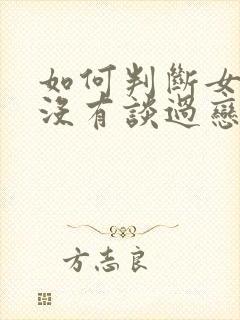 如何判斷女
沒有談過戀
方志良